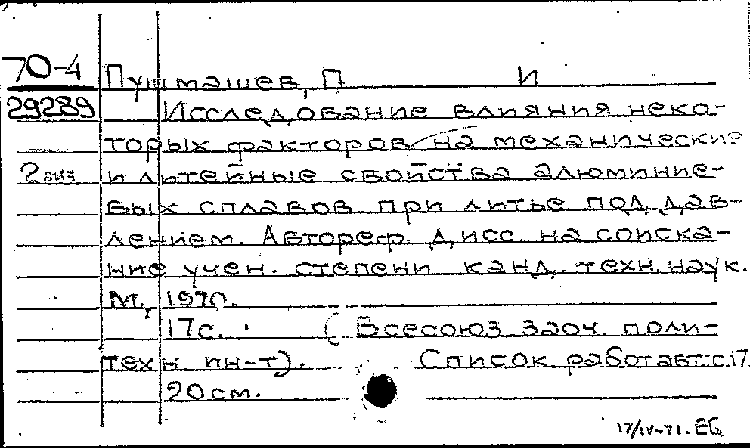 70-4
Пушмашев, П И
29289 Исследование влияния неко-
торых факторов на механические
2 экз и литейные свойства алюминие-
вых сплавов при литье под дав-
лением. Автореф. дисс. на соиска-
ние учен. степени канд. техн. наук.
М., 1970.
17 с. (Всесоюз. заоч. поли-
техн. ин-т). Список работ авт: с. 17
20 см.
17/IV-71. EG